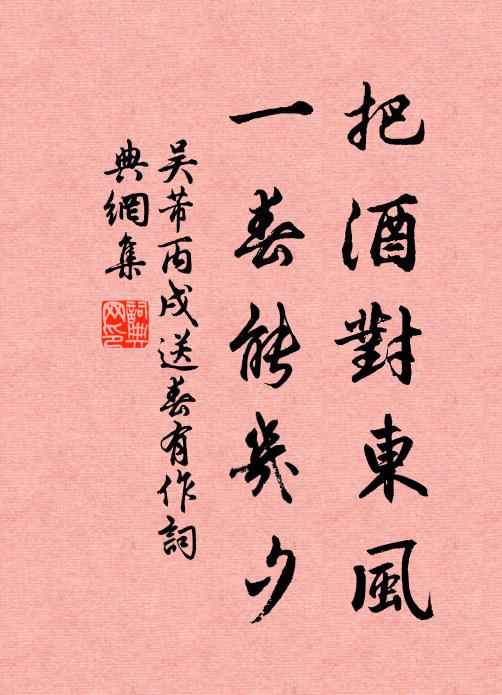 把酒對東風
一春能幾夕
吳芾丙戌送春有作詞
典網集
詞典
網印